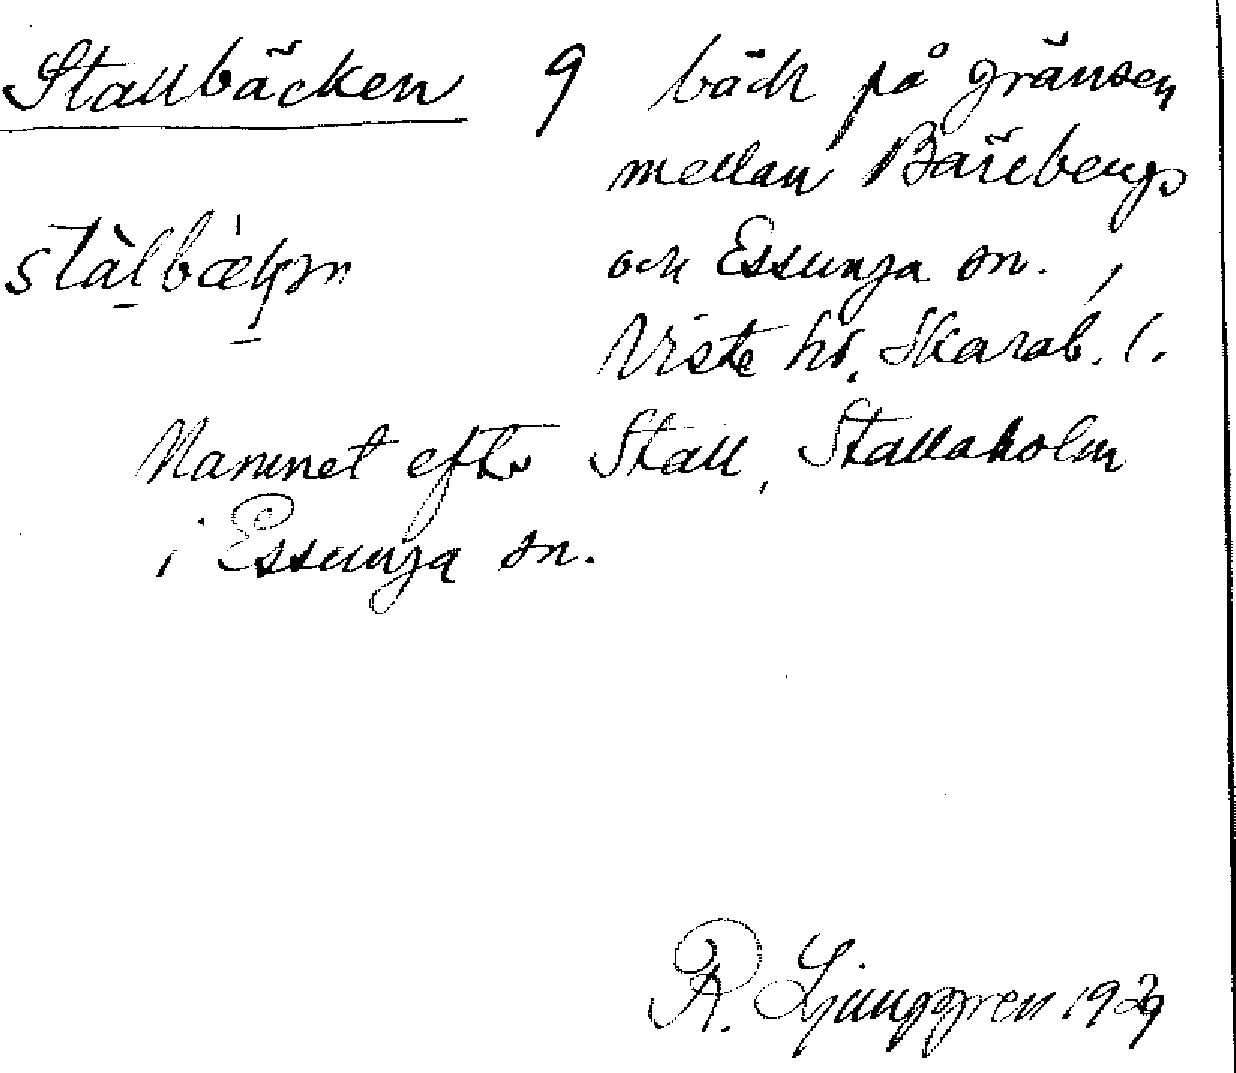 Stallbäcken 9 bäck på gränsen
mellan Bärebergs
och Essunga sn. i
Viste hd. Skarab. l.
Namnet efter Stall, Stallaholm
i Essunga sn.
R. Ljunggren 1929